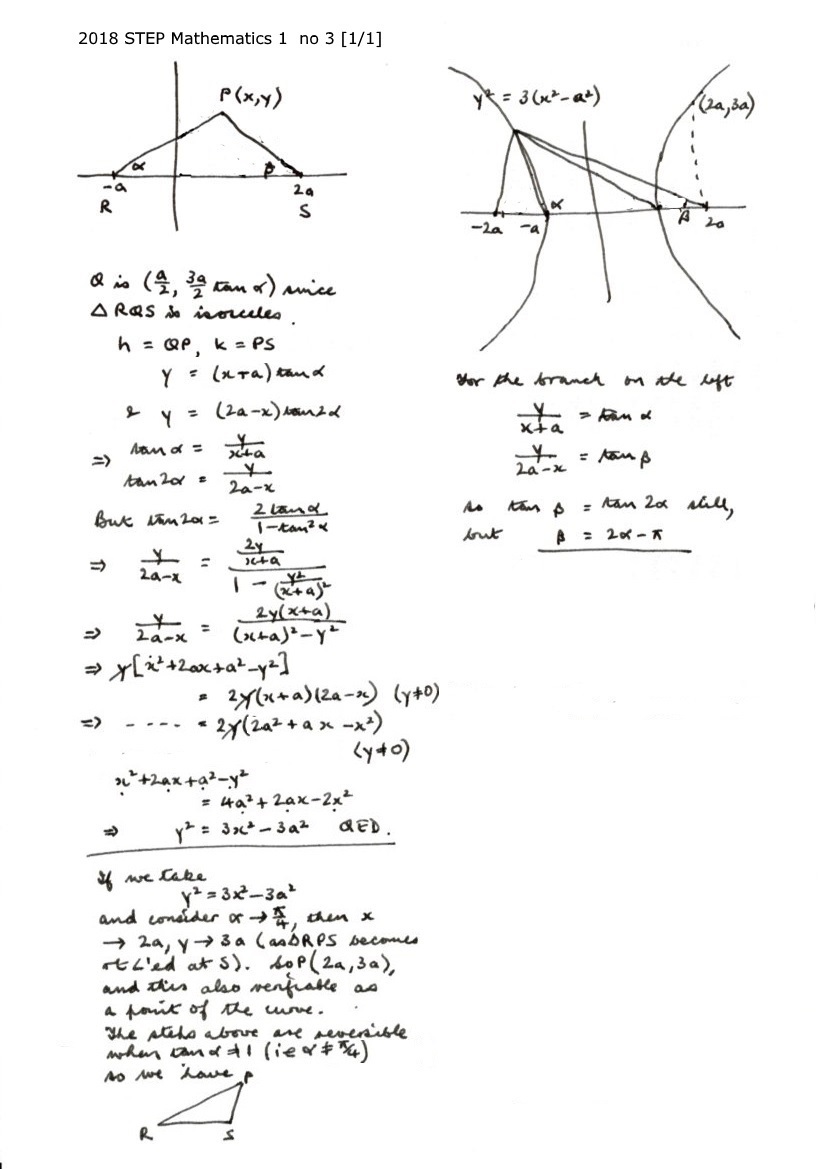 2018 STEP Mathematics 1 no 3 [1/1]
P(x,y)
α
β
-a
2a
R
S
Q is (a/2, 3a/2 tan α) since
△ RQS is isosceles.
h = QP, k = PS
y = (x+a) tan α
& y = (2a-x) tan 2α
⇒ tan α = y/(x+a)
tan 2α = y/(2a-x)
But tan 2α = 2 tan α/(1 - tan² α)
⇒ y/(2a-x) = (2y/(x+a))/(1 - y²/(x+a)²)
⇒ y/(2a-x) = 2y(x+a)/((x+a)² - y²)
⇒ y[x²+2ax+a²-y²]
= 2y(x+a)(2a-x) (y≠0)
⇒ - - - - = 2y(2a²+ax-x²)
(y≠0)
x²+2ax+a²-y²
= 4a²+2ax-2x²
⇒ y² = 3x²-3a² QED.
If we take
y² = 3x²-3a²
and consider α → π/4, then x
→ 2a, y → 3a (as △RPS becomes
rt ∠'ed at S). So P(2a,3a),
and this also verifiable as
a point of the curve.
The steps above are reversible
when tan α ≠ 1 (ie α ≠ π/4)
so we have
P
R
S
y² = 3(x²-a²)
(2a,3a)
α
β
-2a
-a
2a
For the branch on the left
y/(x+a) = tan α
y/(2a-x) = tan β
so tan β = tan 2α still,
but β = 2α - π